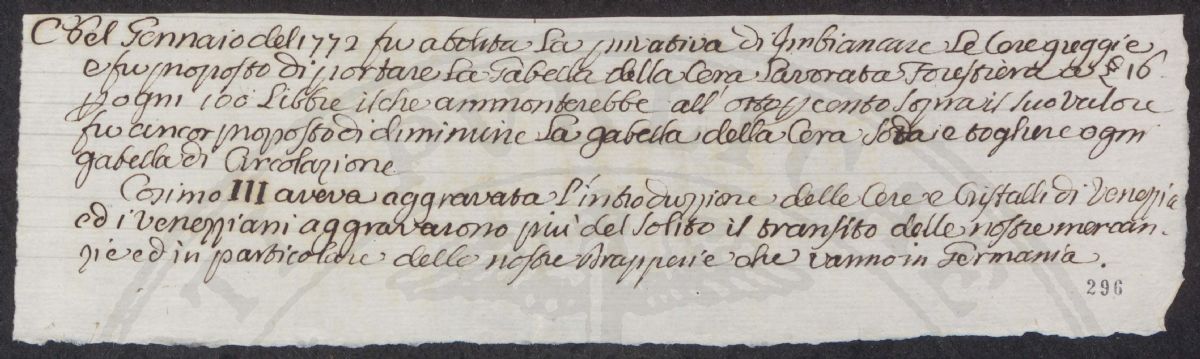 Nel Gennaio del 1772 fu abolita La privativa di Imbiancare Le Cere greggie
e fu proposto di portare La Gabella della Cera Lavorata Forestiera a £ 16
p ogni 100 Libbre il che ammonterebbe all' otto p cento sopra il suo valore
fu ancor proposto di diminuire La gabella della Cera soda e togliere ogni
gabella di Circolazione
Cosimo III aveva aggravata l'introduzzione delle Cere e Cristalli di Venezzia
ed i Venezziani aggravarono più del solito il transito delle nostre mercan-
zie ed in particolare delle nostre Drapperie che vanno in Germania.
296